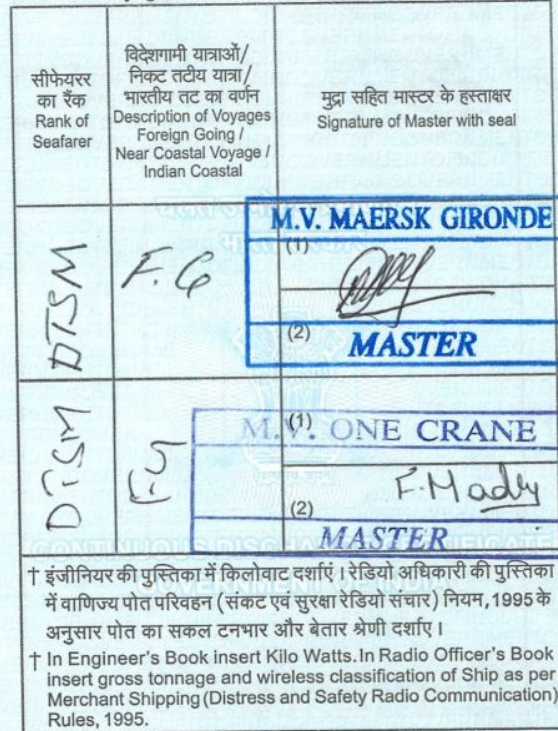 सीफेयरर
का रैंक
Rank of
Seafarer
विदेशगामी यात्राओं/
निकट तटीय यात्रा/
भारतीय तट का वर्णन
Description of Voyages
Foreign Going /
Near Coastal Voyage /
Indian Coastal
मुद्रा सहित मास्टर के हस्ताक्षर
Signature of Master with seal
DTSM
F.G
M.V. MAERSK GIRONDE
(1)
(2)
MASTER
DTSM
F.G
M.V. ONE CRANE
(1)
(2)
MASTER
CONTINUOUS DISCHARGE CERTIFICATE
GOVERNMENT OF INDIA
† इंजीनियर की पुस्तिका में किलोवाट दर्शाएं । रेडियो अधिकारी की पुस्तिका
में वाणिज्य पोत परिवहन (संकट एवं सुरक्षा रेडियो संचार) नियम, 1995 के
अनुसार पोत का सकल टनभार और बेतार श्रेणी दर्शाए ।
† In Engineer's Book insert Kilo Watts. In Radio Officer's Book
insert gross tonnage and wireless classification of Ship as per
Merchant Shipping (Distress and Safety Radio Communication)
Rules, 1995.